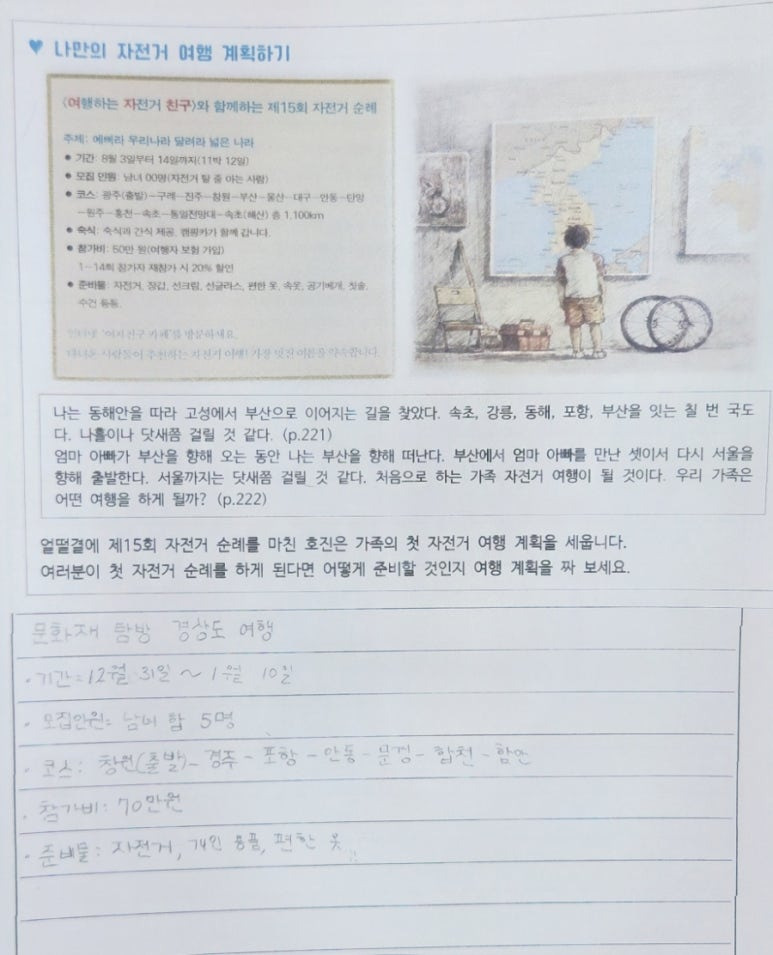 ♥ 나만의 자전거 여행 계획하기
〈여행하는 자전거 친구〉와 함께하는 제15회 자전거 순례
주제: 에뻐라 우리나라 달려라 넓은 나라
● 기간: 8월 3일부터 14일까지(11박 12일)
● 모집 인원: 남녀 00명(자전거 탈 줄 아는 사람)
● 코스: 광주(출발)－구례－진주－창원－부산－울산－대구－안동－단양
－원주－홍천－속초－통일전망대－속초(해산) 총 1,100km
● 숙식: 숙식과 간식 제공. 캠핑카가 함께 갑니다.
● 참가비: 50만 원(여행자 보험 가입)
1－14회 참가자 재참가 시 20% 할인
● 준비물: 자전거, 장갑, 선크림, 선글라스, 편한 옷, 속옷, 공기베개, 칫솔,
수건 등등.
인터넷 '여자친구 카페'를 방문하세요.
다녀온 사람들이 추천하는 자전거 여행! 가장 멋진 여름을 약속합니다.
나는 동해안을 따라 고성에서 부산으로 이어지는 길을 찾았다. 속초, 강릉, 동해, 포항, 부산을 잇는 칠 번 국도
다. 나흘이나 닷새쯤 걸릴 것 같다. (p.221)
엄마 아빠가 부산을 향해 오는 동안 나는 부산을 향해 떠난다. 부산에서 엄마 아빠를 만난 셋이서 다시 서울을
향해 출발한다. 서울까지는 닷새쯤 걸릴 것 같다. 처음으로 하는 가족 자전거 여행이 될 것이다. 우리 가족은
어떤 여행을 하게 될까? (p.222)
얼떨결에 제15회 자전거 순례를 마친 호진은 가족의 첫 자전거 여행 계획을 세웁니다.
여러분이 첫 자전거 순례를 하게 된다면 어떻게 준비할 것인지 여행 계획을 짜 보세요.
문화재 탐방 경상도 여행
· 기간: 12월 31일 ~ 1월 10일
· 모집인원: 남녀 합 5명
· 코스: 창원(출발) - 경주 - 포항 - 안동 - 문경 - 합천 - 함안
· 참가비: 70만원
· 준비물: 자전거, 개인 용품, 편한 옷